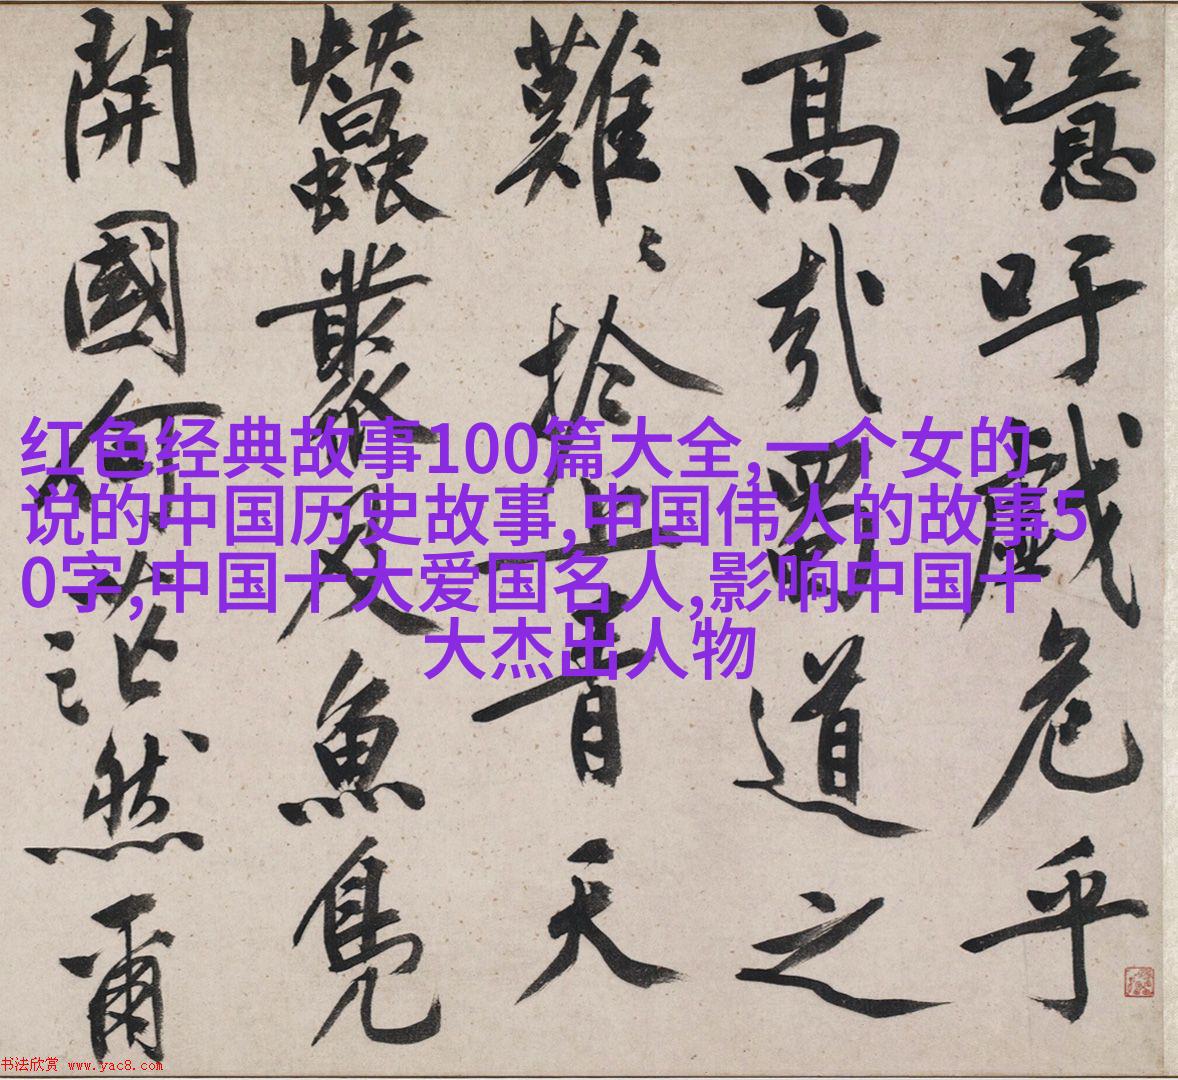 噫吁戲危乎
高哉蜀道之
難〻於上青天
蠶叢及魚鳧
開國何茫然爾
红色经典故事100篇大全,一个女的
说的中国历史故事,中国伟人的故事5
0字,中国十大爱国名人,影响中国十
大杰出人物
书法欣赏 www.yac8.com